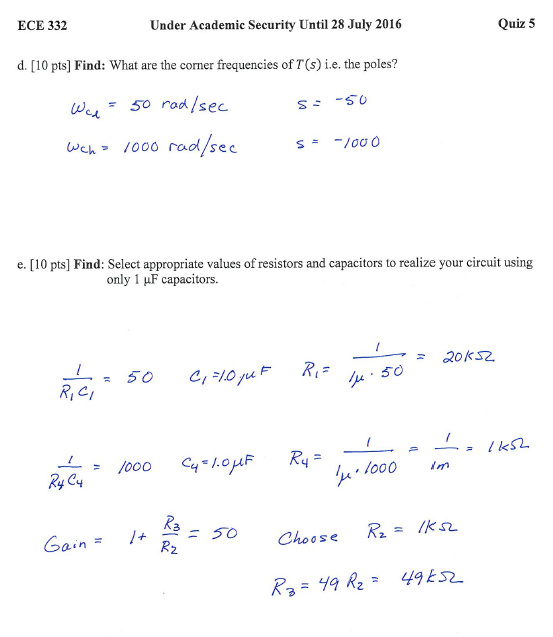 ECE 332 Under Academic Security Until 28 July 2016 Quiz 5
d. [10 pts] Find: What are the corner frequencies of T(s) i.e. the poles?
ωcl = 50 rad/sec s = -50
ωch = 1000 rad/sec s = -1000
e. [10 pts] Find: Select appropriate values of resistors and capacitors to realize your circuit using
only 1 µF capacitors.
1/(R1C1) = 50 C1=1.0 µF R1= 1/(1µ · 50) = 20KΩ
1/(R4C4) = 1000 C4=1.0µF R4 = 1/(1µ · 1000) = 1/1m = 1KΩ
Gain = 1 + R3/R2 = 50 Choose R2 = 1KΩ
R3 = 49 R2 = 49KΩ